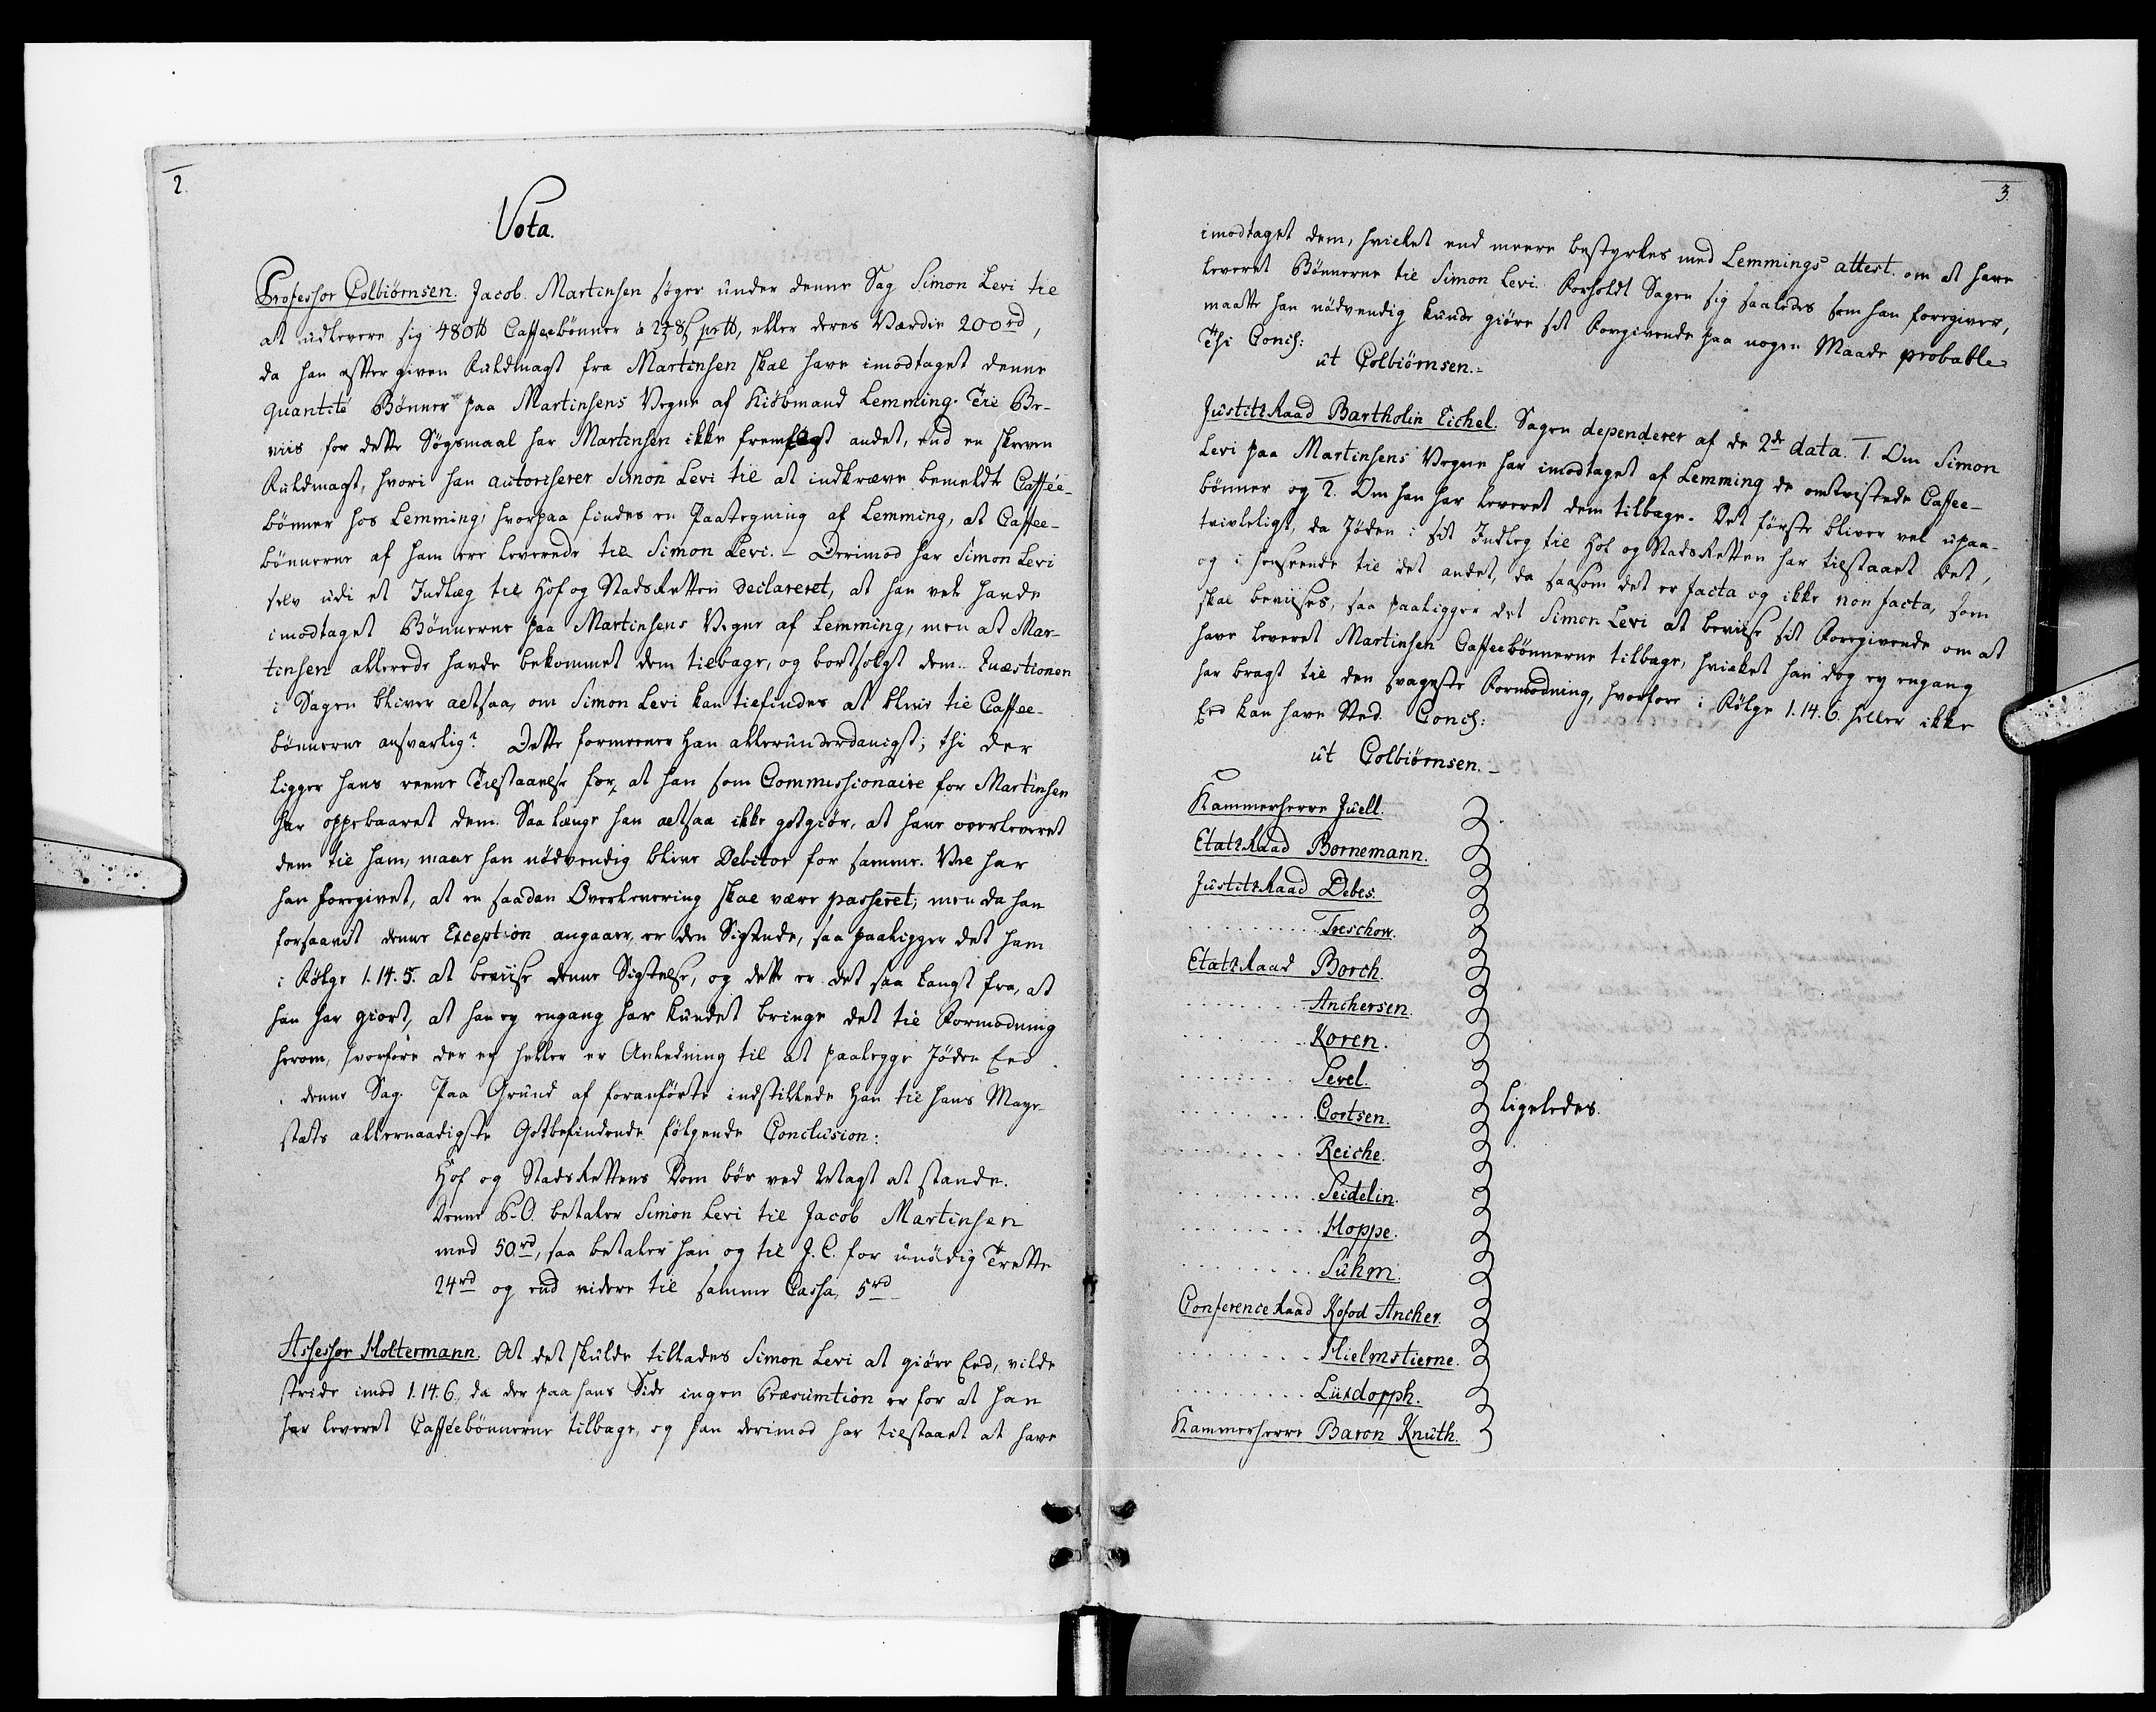 2.
Vota.
Professor Colbiørnsen. Jacob Martensen søger under denne Sag Simon Levi til
at udlevere sig 480 ℔ Caffeebønner à 2 ꝳ 8 ß pr ℔, eller deres Værdie 200 rd,
da han efter given Fuldmagt fra Martensen skal have imodtaget denne
quantité Bønner paa Martinsens Vegne af Kiøbmand Lemming. Til Be-
viis for dette Søgsmaal har Martensen ikke fremlagt andet, end en skreven
Fuldmagt, hvori han autoriserer Simon Levi til at indkræve bemeldte Caffée-
bønner hos Lemming, hvorpaa findes en Paategning af Lemming, at Caffee-
bønnerne af ham ere leverede til Simon Levi. - Derimod har Simon Levi
selv udi et Indlæg til Hof og StadsRetten declareret, at han vel havde
imodtaget Bønnerne paa Martinsens Vegne af Lemming, men at Mar-
tinsen allerede havde bekommet dem tilbage, og bortsolgt dem. Quæstionen
i Sagen bliver altsaa, om Simon Levi kan tilfindes at blive til Caffee-
bønnerne ansvarlig? Dette formeener Han allerunderdanigst; thi der
ligger hans reene Tilstaaelse for, at han som Commissionaire for Martinsen
har oppebaaret dem. Saa længe han altsaa ikke godtgiør, at have overleveret
dem til ham, maae han nødvendig blive Debitor for samme. Vel har
han foregivet, at en saadan Overlevering skal være passeret; men da han
forsaavidt denne Exception angaaer, er den Sigtende, saa paaligger det ham
i Følge 1.14.5. at beviise denne Sigtelse, og dette er det saa langt fra, at
han har giort, at han ey engang har kundet bringe det til Formodning
herom, hvorfore der ey heller er Anledning til at paalegge Jøden Eed
i denne Sag. Paa Grund af foranførte indstillede Han til Hans Maye-
stæts allernaadigste Gotbefindende følgende Conclusion:
Hof og StadsRettens Dom bør ved Magt at stande.
Denne P. O. betaler Simon Levi til Jacob Martinsen
med 50 rd, saa betaler han og til J. C. for unødig Trette
24 rd og end videre til samme Cassa 5 rd
Assessor Holtermann. At det skulde tillades Simon Levi at giøre Eed, vilde
stride imod 1.14.6. da der paa hans Side ingen Præsumtion er for at han
har leveret Cafféebønnerne tilbage, og han derimod har tilstaaet at have
3.
imodtaget dem, hvilket end meere bestyrkes med Lemmings attest om at have
leveret Bønnerne til Simon Levi. Forholdt Sagen sig saaledes som han foregiver,
maatte han nødvendig kunde giøre sit Foregivende paa nogen Maade probable
Thi Concl:
ut Colbiørnsen.
JustitsRaad Bartholin Eichel. Sagen dependerer af de 2de data. 1. Om Simon
Levi paa Martinsens Vegne har imodtaget af Lemming de omtvistede Caffee-
bønner og 2. Om han har leveret dem tilbage. Det første bliver vel upaa-
tvivleligt, da Jøden i sit Indleg til Hof og StadsRetten har tilstaaet det,
og i henseende til det andet, da saasom det er facta og ikke non facta, som
skal beviises, saa paaligger det Simon Levi at beviise sit Foregivende om at
have leveret Martinsen Caffeebønnerne tilbage, hvilket han dog ey engang
har bragt til den svageste Formodning, hvorfore i Følge 1.14.6. heller ikke
Eed kan have Sted. Concl:
ut Colbiørnsen.
Kammerherre Juell.
EtatsRaad Bornemann.
JustitsRaad Debes.
Treschow.
EtatsRaad Borch.
Anchersen.
Koren.
Sevel.
Cortsen.
Reiche.
Seidelin.
Hoppe.
Suhm.
Ligeledes.
ConferenceRaad Kofod Ancher.
Hielmstierne.
Luxdorph.
Kammerherre Baron Knuth.